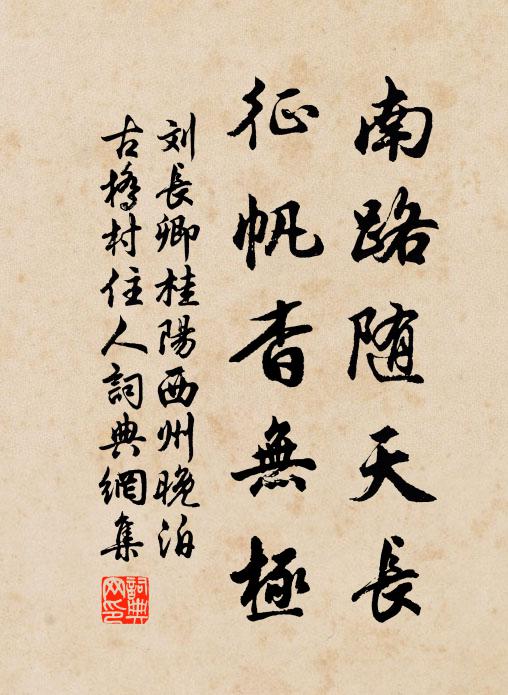 南路随天长
征帆杳無極
刘長卿桂陽西州晚泊
古橋村住人詞典網集
詞典
网印